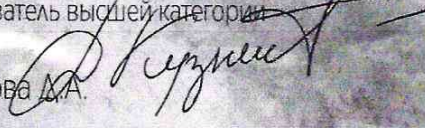 ватель высшей категории
ова Д.А.